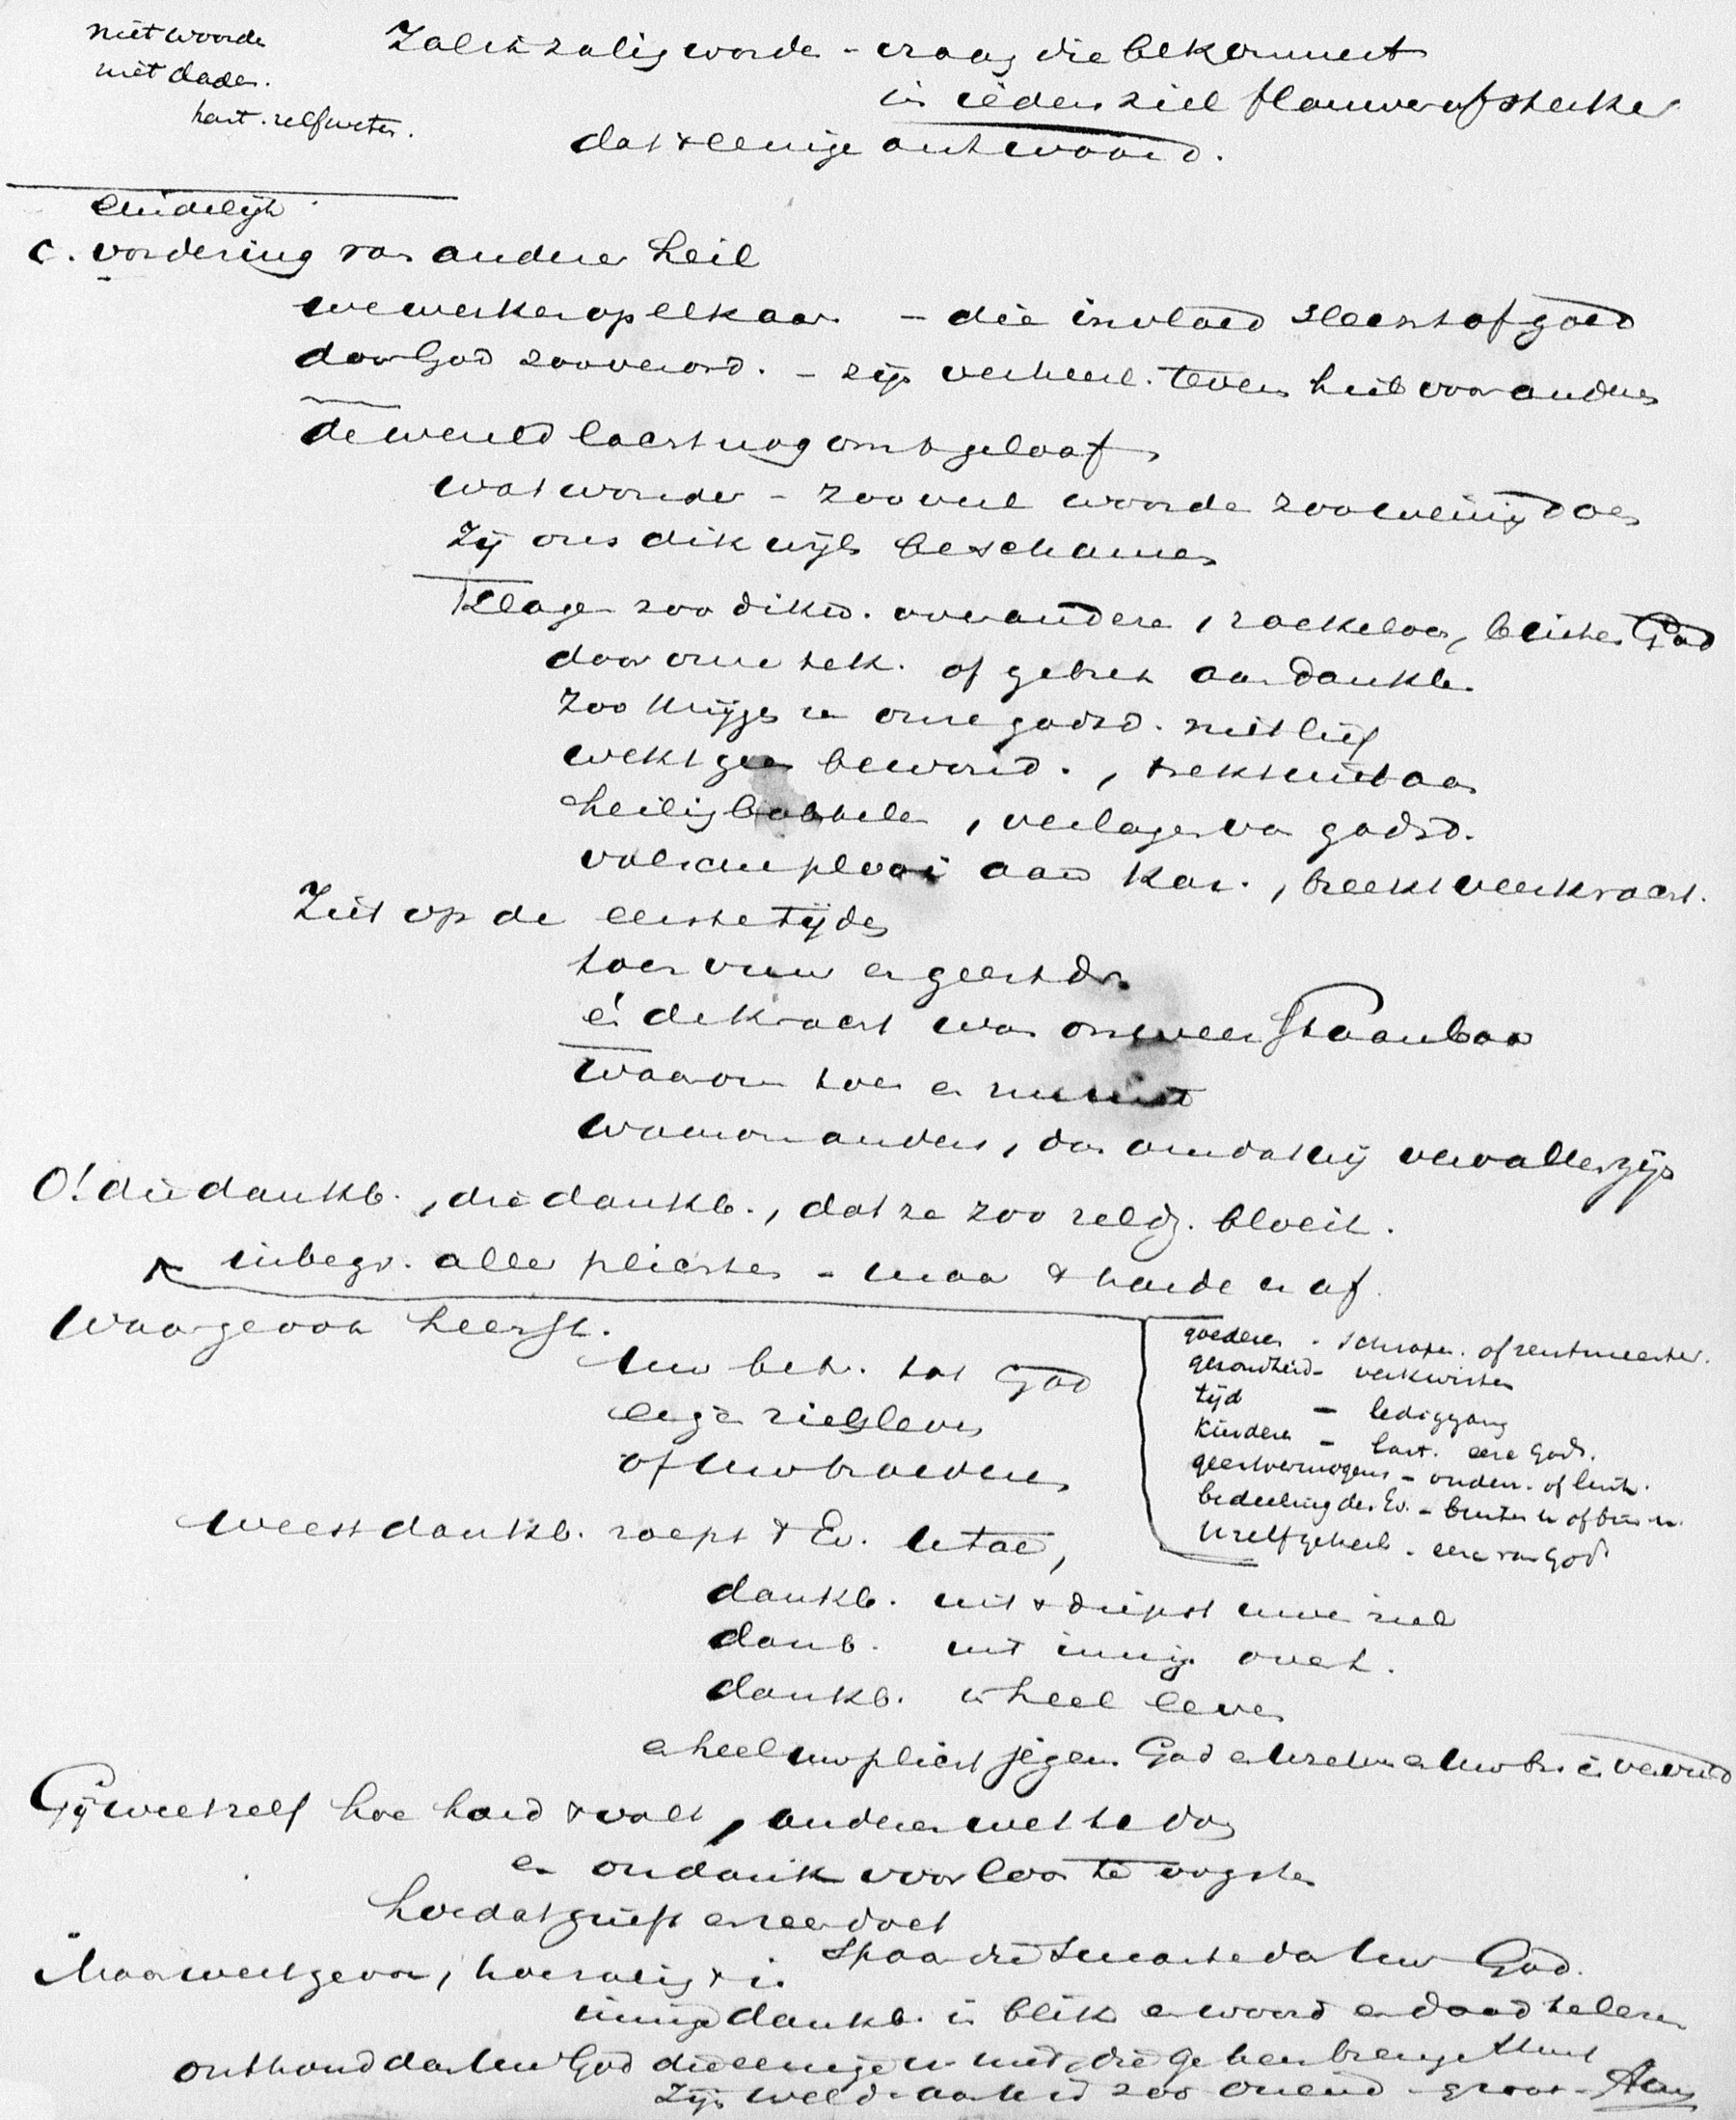 niet woorden
niet daden.
hart. zelf weten.
Zal ik zalig worden - vraag die bekommert
in ieders ziel flauwer of sterker
dat 't eenige antwoord.
Eindelijk
c. vordering van anderer heil
we werken op elkaar - die invloed slecht of goed
door God zoo verord. - zijn verheerl. tevens heil voor anderen
de wereld lacht nog om 't geloof
wat wonder - zooveel woorden zoo weinig doen
Zij ons dikwijls beschamen
Klagen zoo dikw. over anderen, roekeloos,
door onze of gebrek aan dankb.
Zoo krijgen ze onze godsd. niet lief
wekt geen bewond., trekt niet aan
heilig babbelen, verlagen van godsd.
aan kar., breekt veerkracht.
Ziet op de eerste tijden
toen vuur en geestdr.
en de kracht was onweerstaanbaar
Waarom toen en nu niet
waarom anders, dan omdat wij vervallen zijn
O! die dankb., die dankb., dat ze zoo zeldz. bloeit.
inbegr. alle plichten - maar 't harde er af.
Waar ze ook heerscht.
Uw betr. tot God
eigen zielsleven
of uw broederen
goederen - schrapen. of rentmeester.
gezondheid - verkwisten
tijd - lediggang
Kinderen - last. eere Gods.
geestvermogens -
bedeeling des Ev. - buiten u of binn. u.
Uzelf geheel - eere van God
Weest dankb. roept 't Ev. U toe,
dankb. uit 't diepst uwer ziel
dankb. uit innige overt.
dankb. in heel leven
en heel uw plicht jegens God en Uzelven en Uw br. is vervuld
Gij weet zelf hoe hard 't valt, anderen wel te doen
en ondank voor loon te oogsten
hoe dat grieft en zeer doet
Spaar die smarte dan Uw God.
Maar weet ge ook, hoe zalig 't is
innige dankb. in blik en woord en daad te lezen
onthoud dan Uw God die eenige u niet, die Ge hem brengen kunt
Zijn weldadigheid zoo oneind. groot - Amen